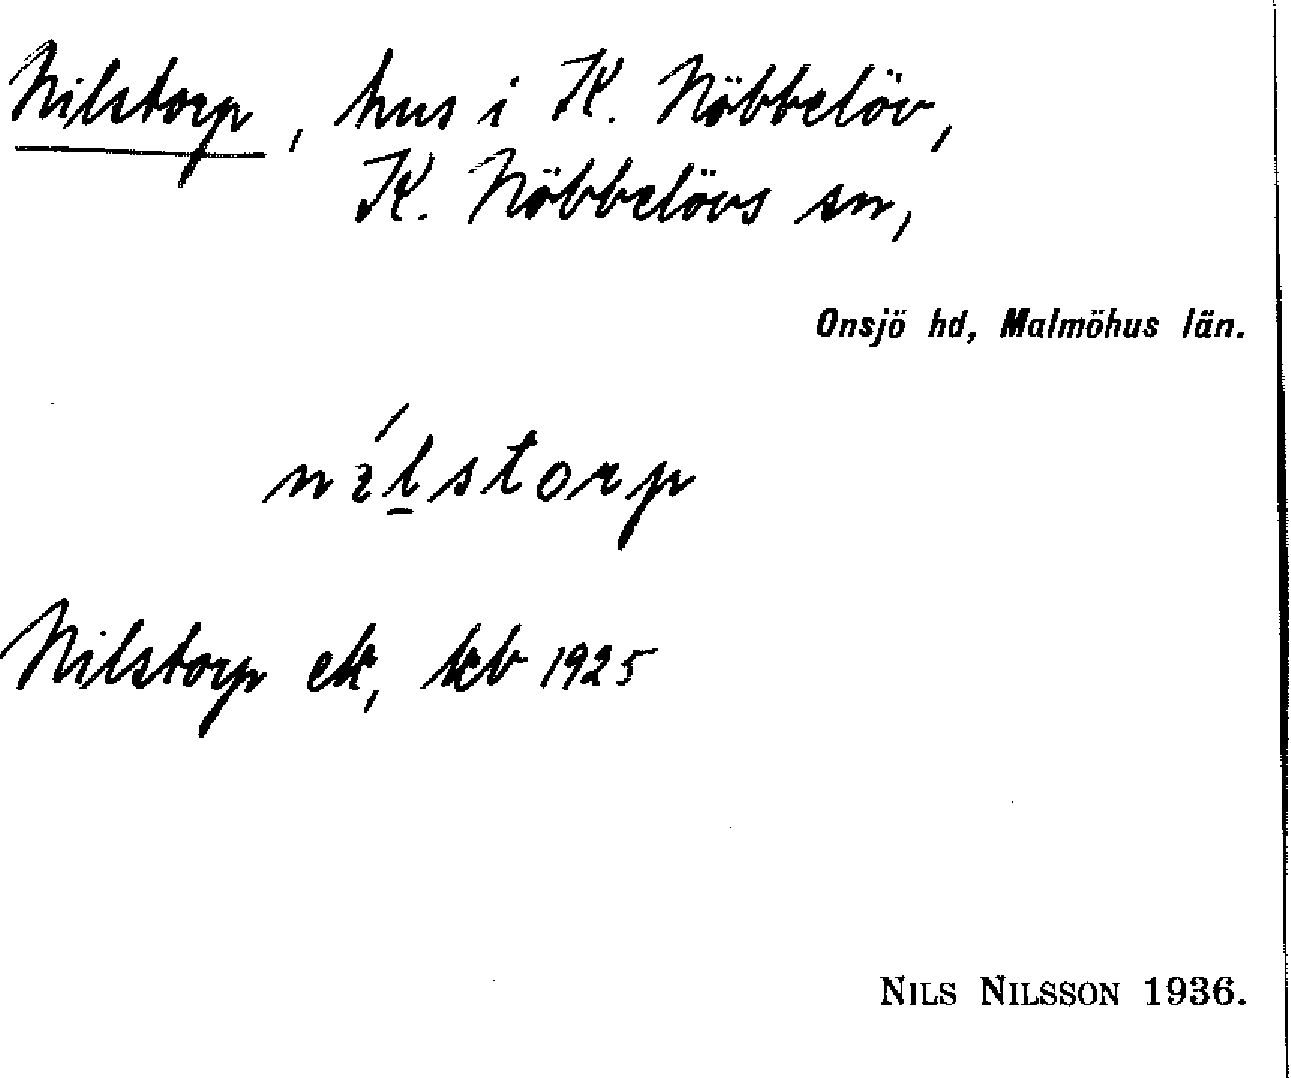 Nilstorp, hus i K. Nöbbelöv,
K. Nöbbelövs sn,
Onsjö hd, Malmöhus län.
nilstorp
Nilstorp ek, kb 1925
NILS NILSSON 1936.